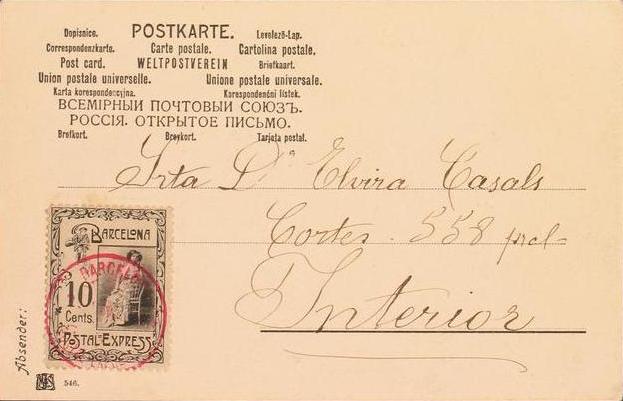 Dopisnice. POSTKARTE. Levelező-Lap.
Correspondenzkarte. Carte postale. Cartolina postale.
Post card. WELTPOSTVEREIN Briefkaart.
Union postale universelle. Unione postale universale.
Karta korespondencyjna. Korespondenční lístek.
ВСЕМІРНЫЙ ПОЧТОВЫЙ СОЮЗЪ.
РОССІЯ. ОТКРЫТОЕ ПИСЬМО.
Brefkort. Brevkort. Tarjeta postal.
Srta Dª Elvira Casals
Cortes. 558 pral
Interior
BARCELONA
BARCEL
10
Cents.
POSTAL-EXPRESS
Absender:
546.